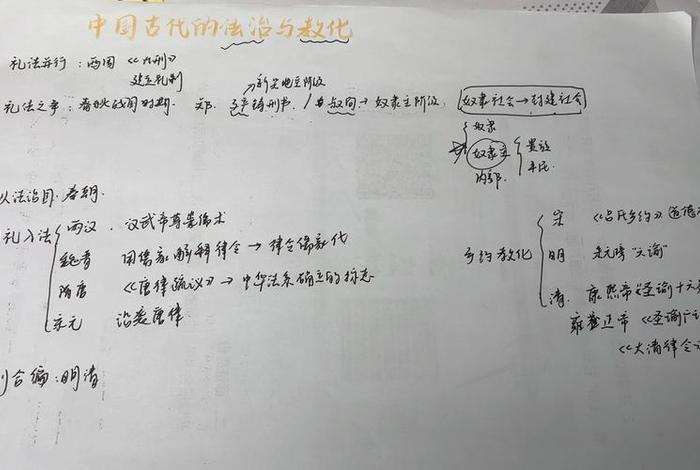 中国古代的法治与教化
礼法并行：西周《九刑》
建立礼制
礼法之争：春秋战国时期. 郑. 子产铸刑书. / 叔向→奴隶主阶级. 奴隶社会→封建社会
新兴地主阶级
奴隶
奴隶主 贵族
内部 平民
以法治国. 秦朝.
礼入法 两汉. 汉武帝尊崇儒术
魏晋 用儒家解释律令→律令儒家化
隋唐 《唐律疏议》→中华法系确立的标志
宋元 沿袭唐律
合编：明清
乡约教化
宋 《吕氏乡约》道德
明 朱元璋"六谕"
清. 康熙帝《圣谕十六
雍正帝《圣谕广
《大清律令》